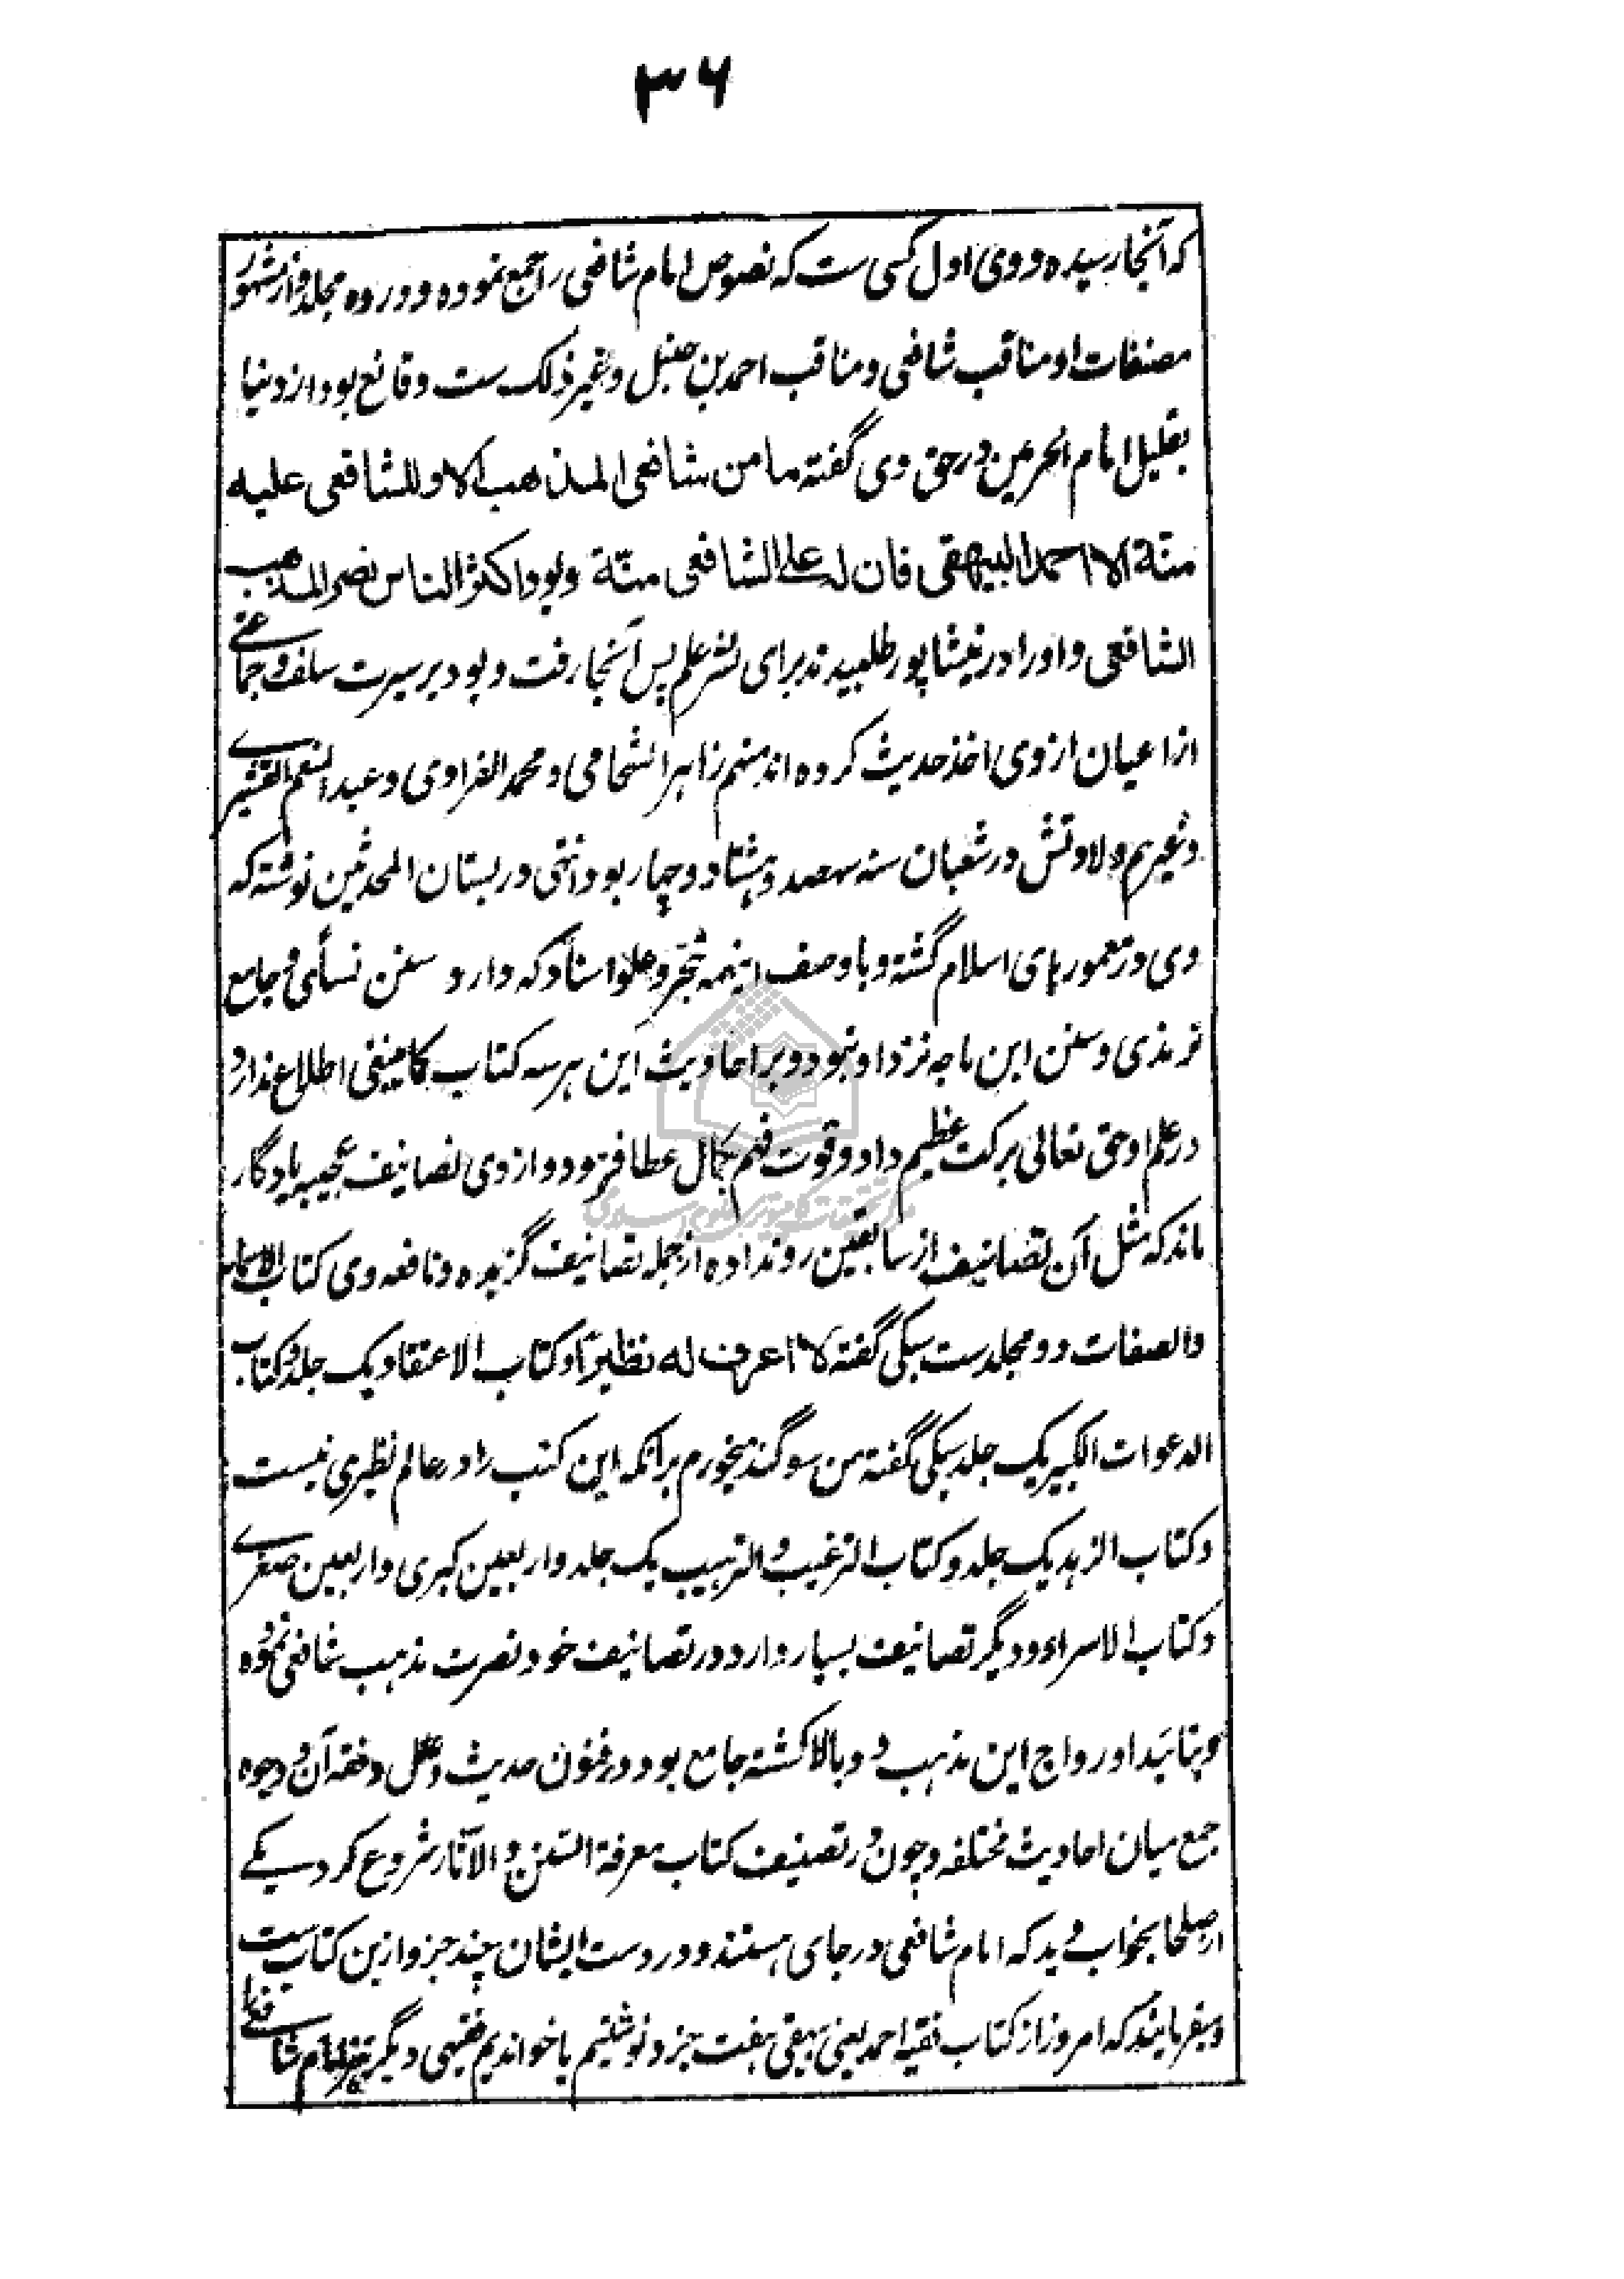 ۳۶
که آنجا رسیده و وی اول کسی ست که نصوص امام شافعی را جمع نموده و در ده مجلد و از مشهور
مصنفات او مناقب شافعی و مناقب احمد بن حنبل و غیر ذلک ست و قانع بود از دنیا
بقلیل امام الحرمین در حق وی گفته ما من شافعی المذهب الا و للشافعی علیه
منّة الا احمد البیهقی فان له علی الشافعی منّة و بود اکثر الناس نصر المذهب
الشافعی و او را در نیشاپور طلبیدند برای نشر علم پس آنجا رفت و بود بر سیرت سلف و جماعتی
از اعیان از وی اخذ حدیث کرده اند منهم زاهر الشحامی و محمد الفراوی و عبد المنعم القشیری
و غیرهم ولادتش در شعبان سنه سهصد و هشتاد و چهار بود انتهی در بستان المحدثین نوشته که
وی در معمورهای اسلام گشته و با وصف اینهمه تبحّر و علوّ اسناد که دارد سنن نسائی و جامع
ترمذی و سنن ابن ماجه نزد او نبود و بر احادیث این هر سه کتاب کما ینبغی اطلاع ندارد
در علم او حق تعالی برکت عظیم داد و قوت فهم بکمال عطا فرمود و از وی تصانیف عجیبه یادگار
ماند که مثل آن تصانیف از سابقین رو نداده از جمله تصانیف گزیده و نافعه وی کتاب الاسماء
والصفات دو مجلدست سبکی گفته لا اعرف له نظیراً و کتاب الاعتقاد یک جلد و کتاب
الدعوات الکبیر یک جلد سبکی گفته من سوگند میخورم برآنکه این کتب را در عالم نظیری نیست
و کتاب الزهد یک جلد و کتاب الترغیب و الترهیب یک جلد و اربعین کبری و اربعین صغری
و کتاب الاسراء و دیگر تصانیف بسیار دارد در تصانیف خود نصرت مذهب شافعی نموده
و بتائید او رواج این مذهب دوبالا گشته جامع بود در فنون حدیث و علل و فقه آن و وجوه
جمع میان احادیث مختلفه و چون در تصنیف کتاب معرفة السّنن و الآثار شروع کرد یکے
از صلحا بخواب دید که امام شافعی در جای هستند و در دست ایشان چند جزو ازین کتاب ست
و میفرمایند که امروز از کتاب فقیه احمد یعنی بیهقی هفت جزو نوشتیم یا خواندیم فقیهی دیگر امام شافعی را